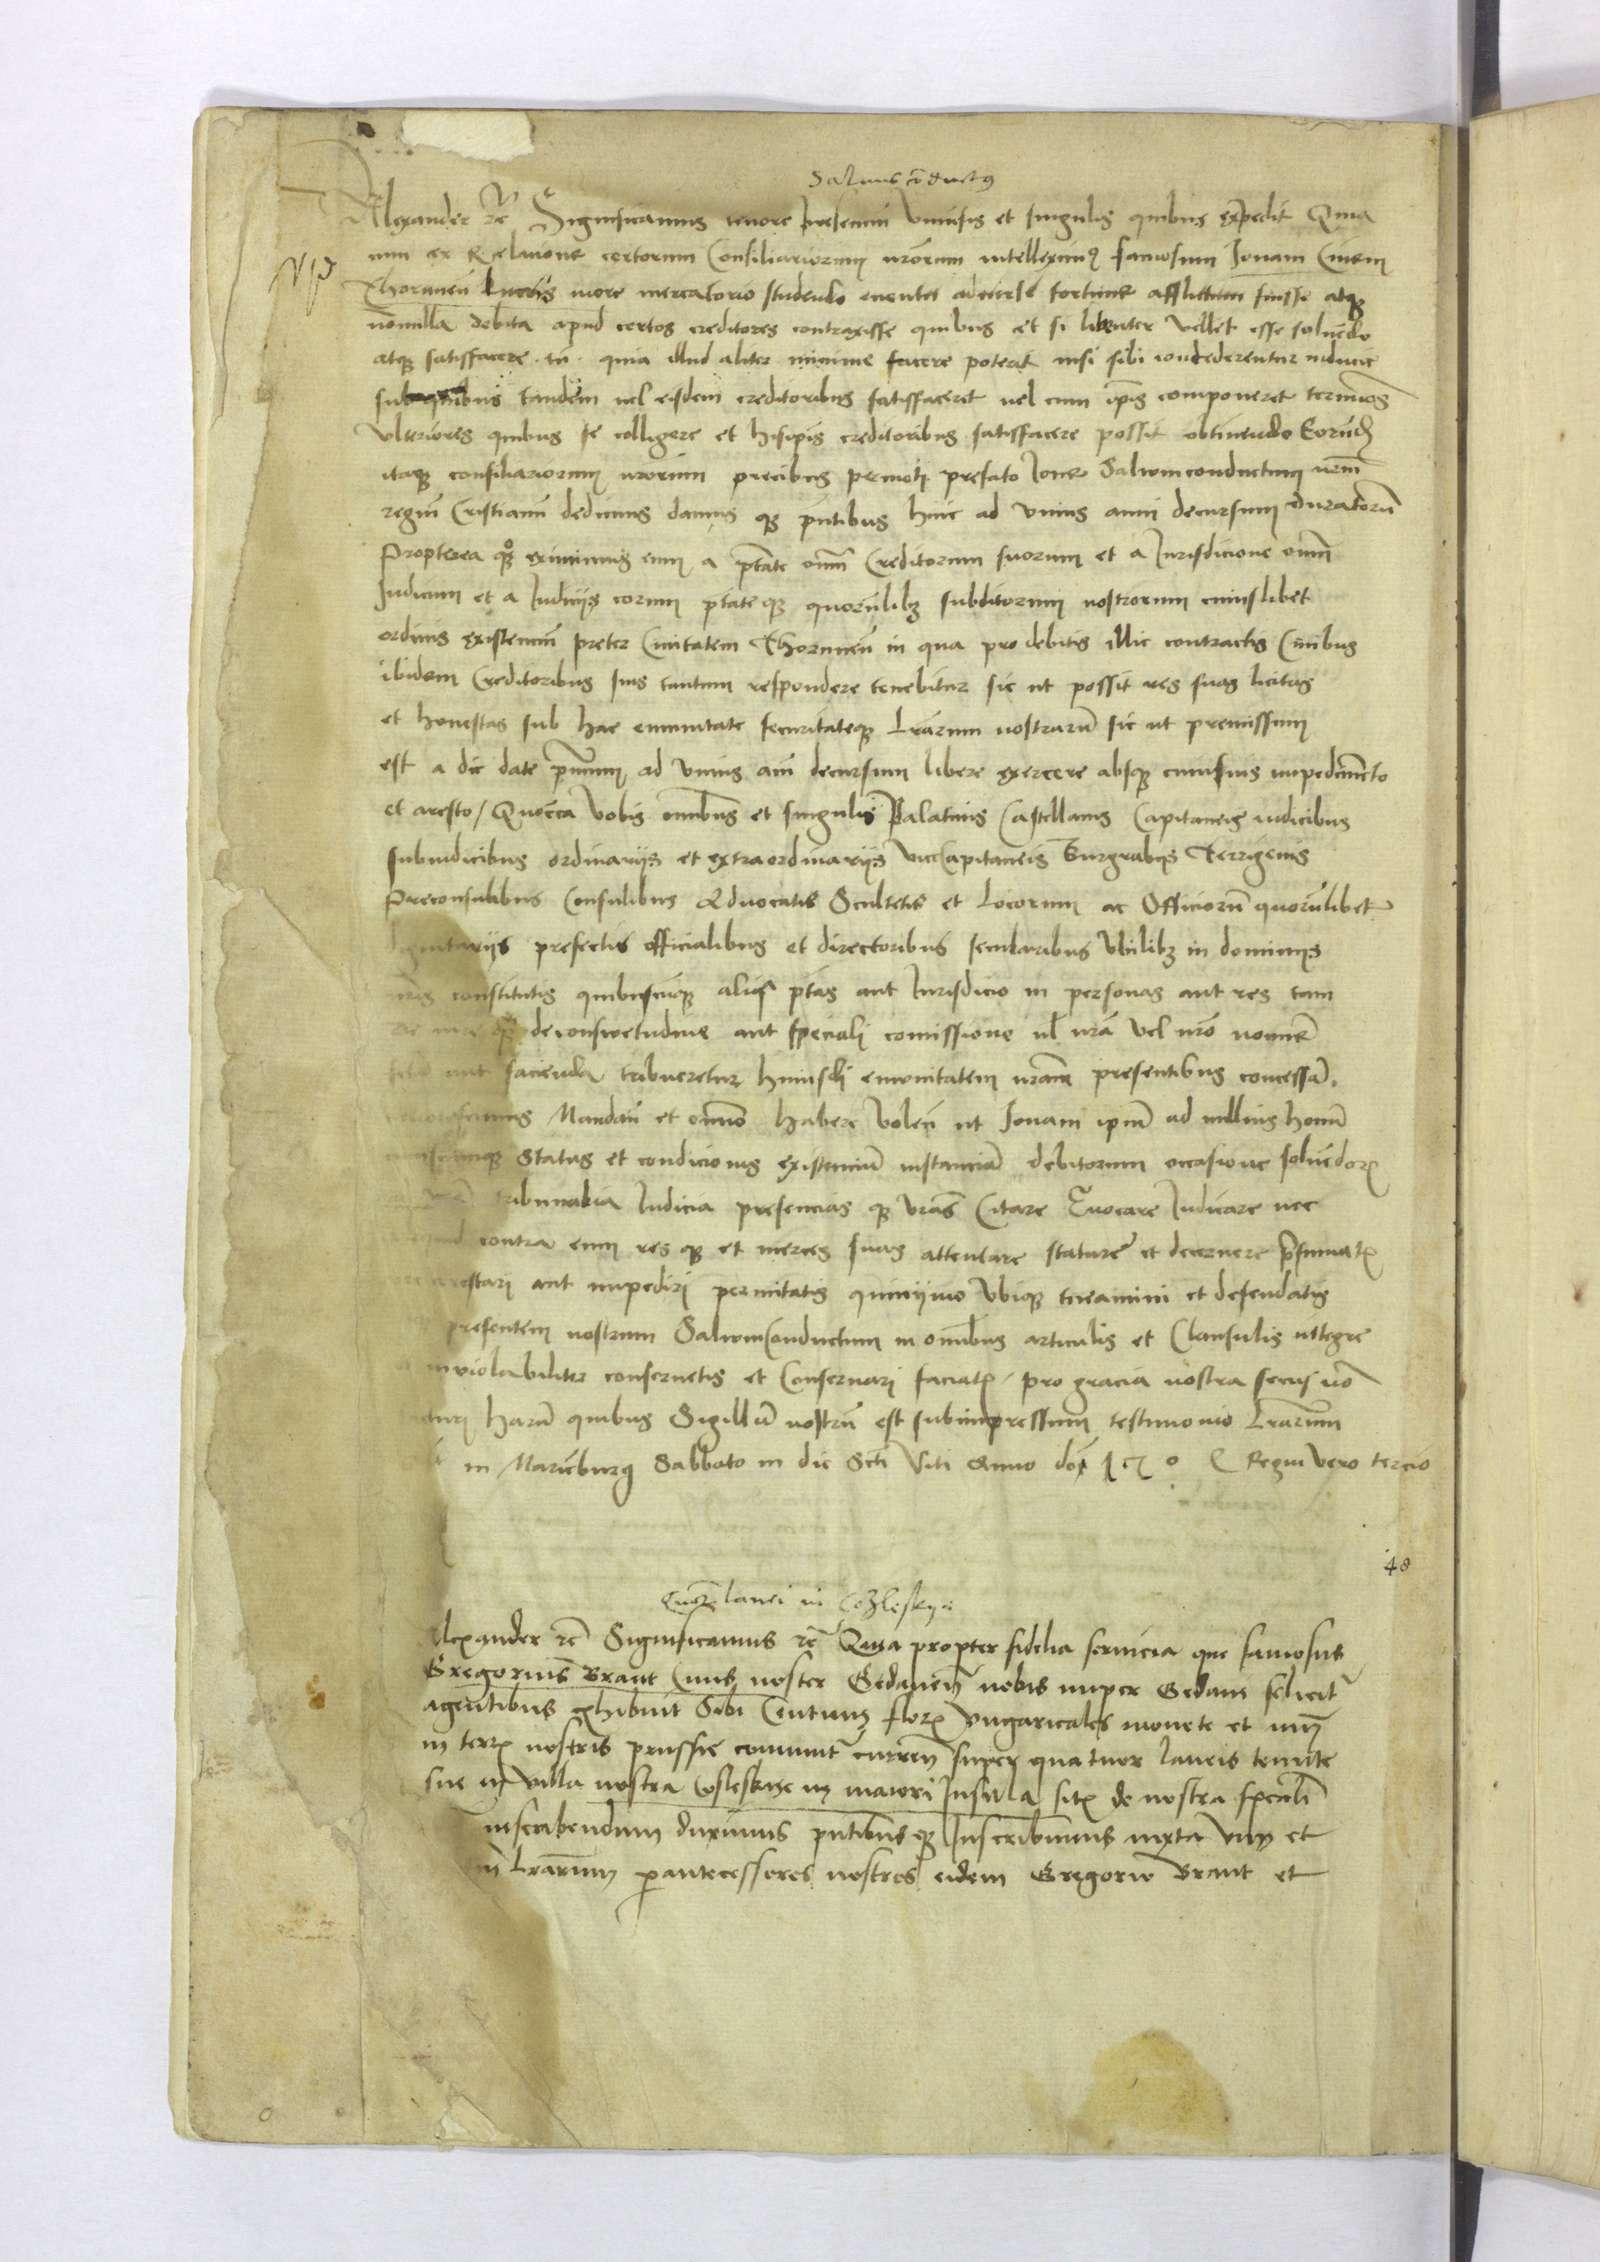 Saluus cōductus
Alexander etc Significamus tenore presencium Vniuersis et singulis quibus expedit Quia
cum ex Relacione certorum Consiliariorum nrorum intelleximus famosum Ionam Ciuem
Thorunen lucris more mercatorio studendo euentu aduerse fortune afflictum fuisse atque
nonnulla debita apud certos creditores contraxisse quibus et si libenter Vellet esse soluendo
atque satisfacere tn quia illud aliter minime facere poterit nisi sibi concederentur inducie
sub quibus tandem vel eisdem creditoribus satisfaceret vel cum ipis componeret terminos
Vlteriores quibus se colligere et hisipis creditoribus satisfacere possit obtinendo Eorund
itaque consiliariorum nrorum precibus permoti prefato Ione Saluumconductum nrm
regium Cristianū dedimus damus que pntibus hinc ad Vnius anni decursum duraturū
Propterea eximimus eum a ptate omnī Creditorum suorum et a Iurisdicione omnī
Iudicum et a Iudicijs eorum ptateque quorūlibz subditorum nostrorum cuiuslibet
ordinis existencium preter Ciuitatem Thorunen in qua pro debitis illic contractis Ciuibus
ibidem Creditoribus suis tantum respondere tenebitur sic ut possit res suas licitas
et honestas sub hac emunitate securitateque Lrarum nostrarū sic ut premissum
est a die date pntium ad Vnius anni decursum libere exercere absque cuiusuis impedimento
et aresto / Quocca Vobis omibus et singulis Palatinis Castellanis Capitaneis iudicibus
subiudicibus ordinarijs et extraordinarijs viceCapitaneis Burgrabijs Terrigenis
Preconsulibus Consulibus Aduocatis Scultetis et Locorum ac Officiorū quorūlibet
dignitarijs prefectis officialibus et directoribus secularibus Vbilibz in dominijs
nris constitutis quibuscūque aliqua ptas aut Iurisdicio in personas aut res tam
de iure que de consuetudine aut speciali comissione vl nra vel nro nomine
facta aut facienda tribueretur huiusmodi emunitatem nram presentibus concessā
Mandan et omnino habere Volen ut Ionam ipm ad nullius hominū
cuiuscunque Status et condicionis existenciū instanciā debitorum occasione soluēdor
tribunalia Iudicia presencias que vras Citare Euocare Iudicare nec
contra eum res que et merces suas attentare statuere et decernere presumat
arestari aut impediri permittatis quinijmo Vbique tueamini et defendatis
presentem nostrum Saluumconductum in omibus articulis et Clausulis integre
et inviolabiliter conseruetis et Conseruari faciat pro gracia nostra secus nō
facturi harū quibus Sigillū nostrū est subimpressum testimonio Lrarum
in Marieburg Sabbato in die Scti Viti Anno dni Regni vero tercio
48
Quatuor lanei in Cozleskye
Alexander etc Significamus etc Quia propter fidelia seruicia que famosus
Gregorius Brant Ciuis noster Gedanen nobis nuper Gedani feliciter
agentibus exhibuit Sibi Centum flor Vngaricales monete et num
in terr nostris prussie comunit currenn super quatuor laneis tenute
sue in villa nostra Cosleskye in maiori Insula sit de nostra speciali
inscribendum duximus pntibusque Inscribimus iuxta Vim et
Lrarum p antecessores nostros eidem Gregorio Brant et